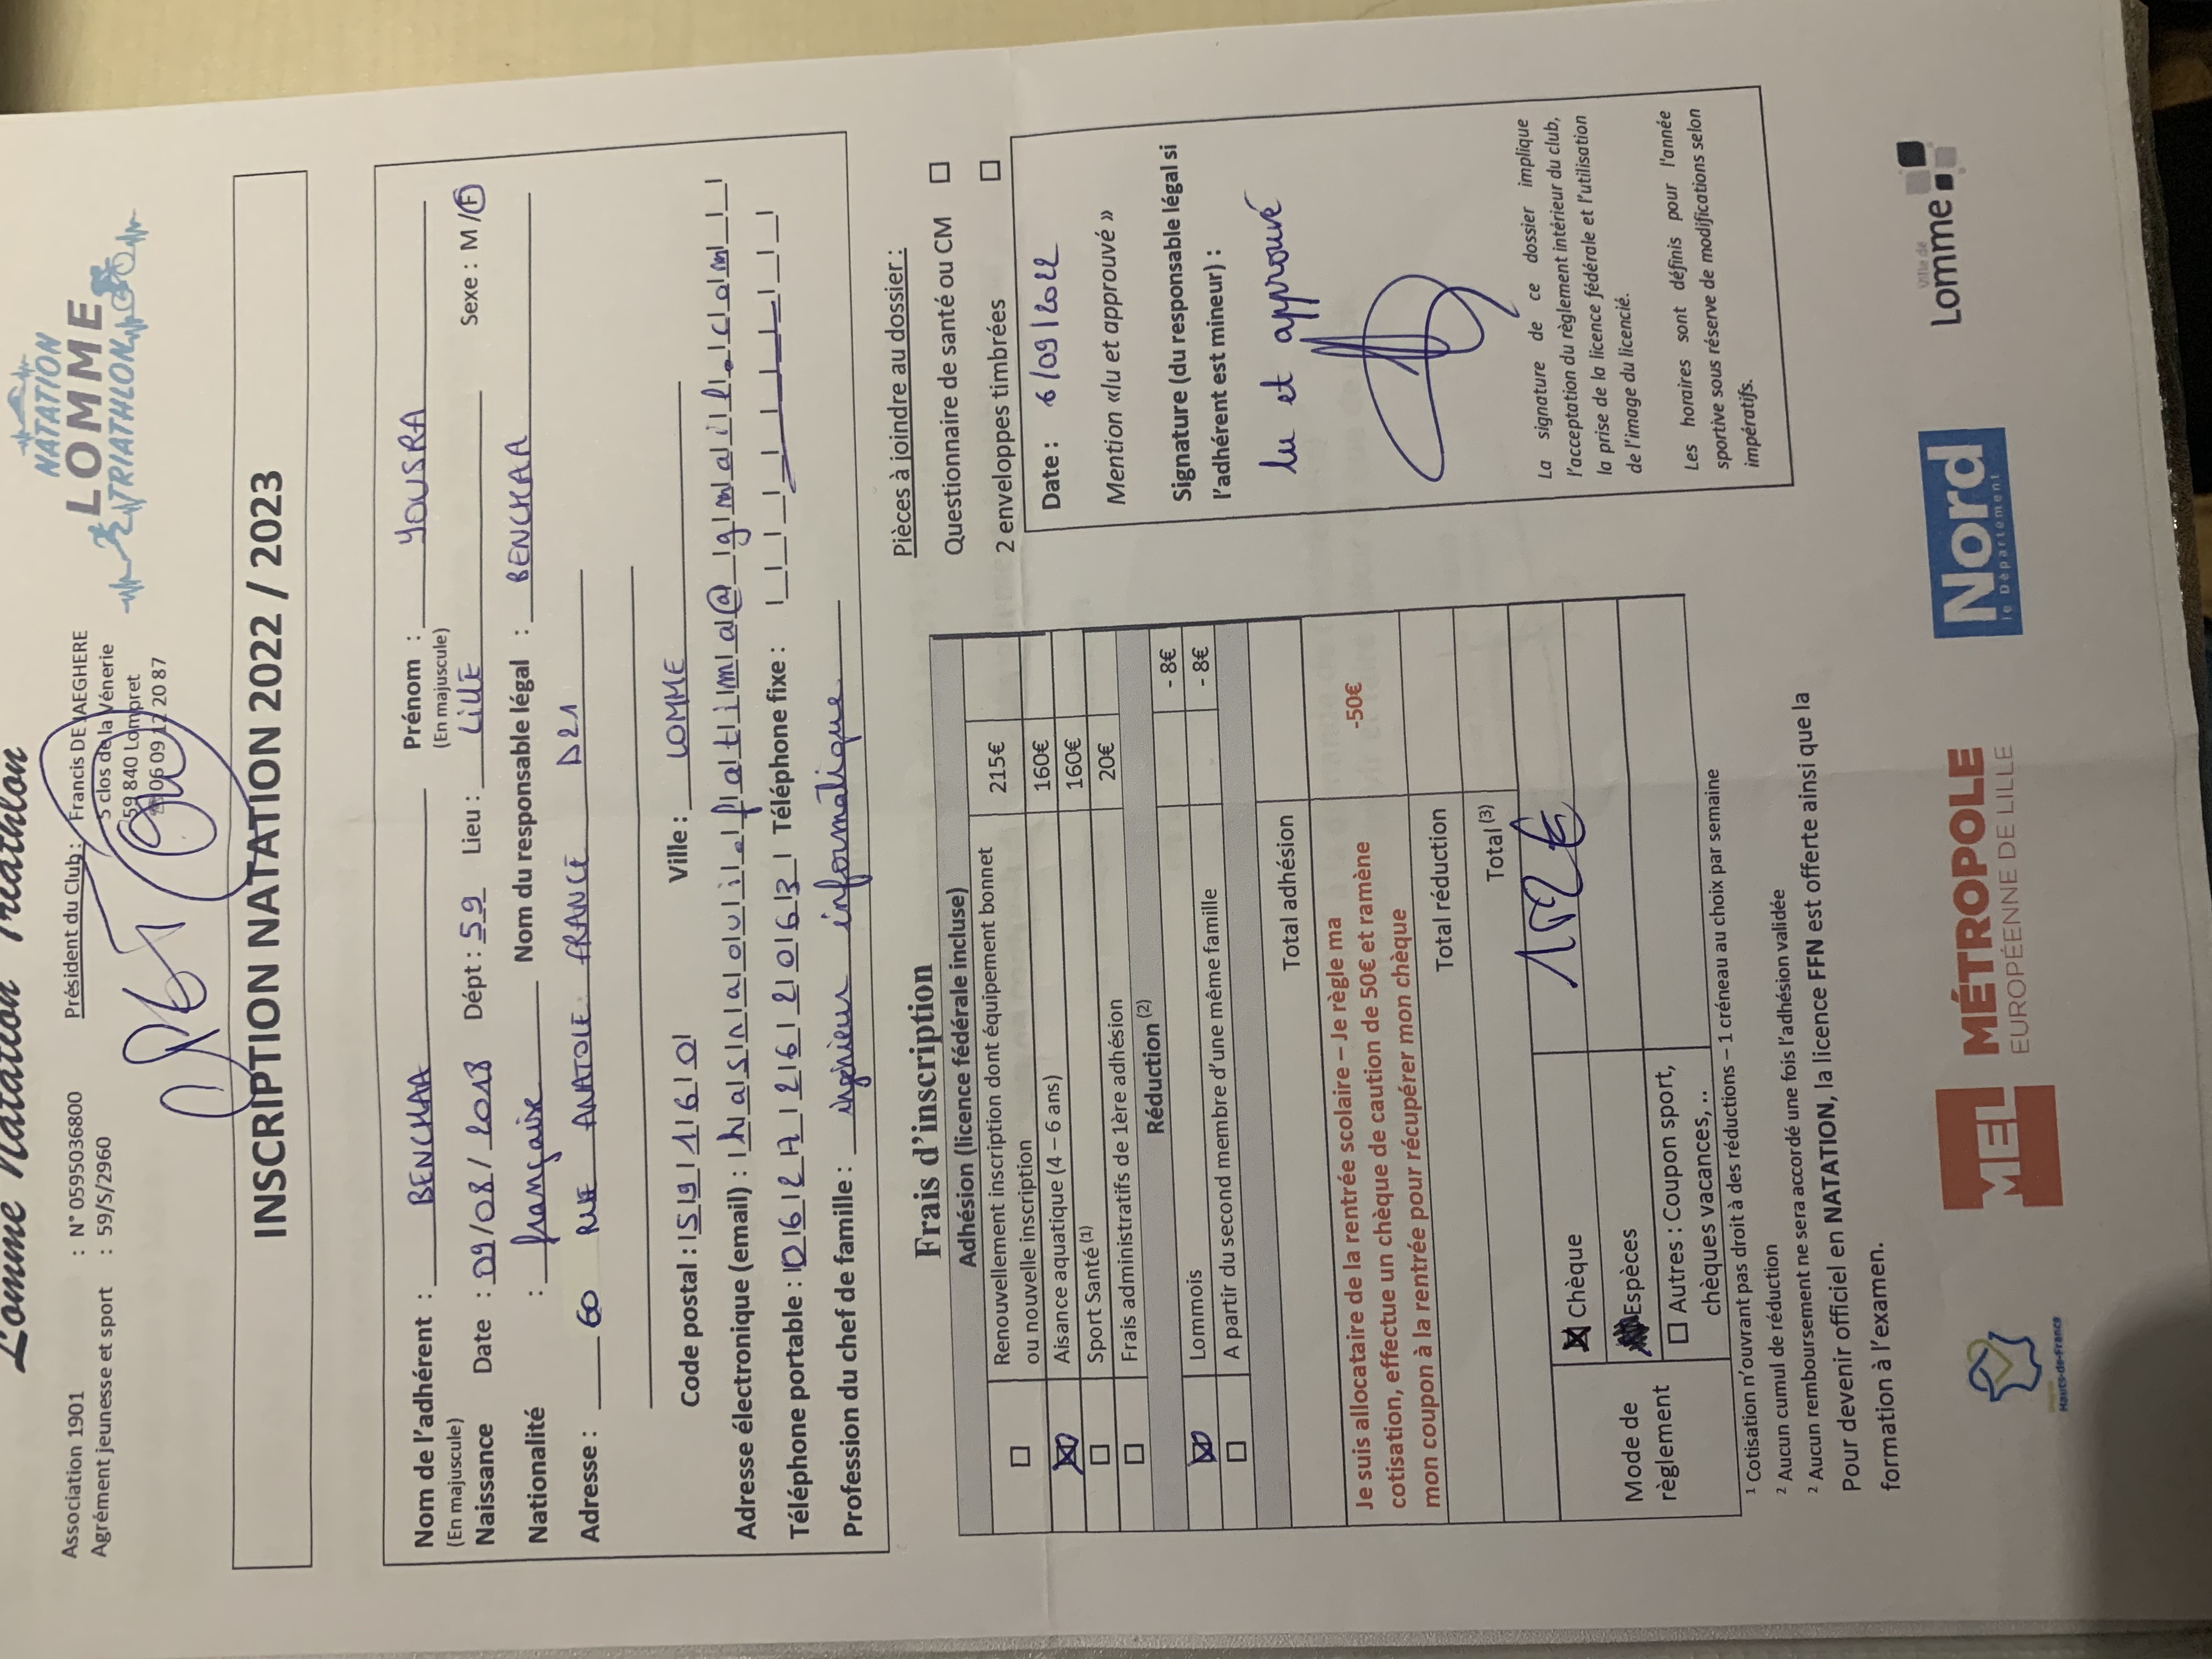 Lomme Natation Triathlon
NATATION
LOMME
TRIATHLON
Association 1901 : N° 0595036800
Agrément jeunesse et sport : 59/S/2960
Président du Club : Francis DEJAEGHERE
5 clos de la Vénerie
59 840 Lompret
☎ 06 09 12 20 87
INSCRIPTION NATATION 2022 / 2023
Nom de l'adhérent : BENCHAA Prénom : YOUSRA
(En majuscule) (En majuscule)
Naissance Date : 09/08/2018 Dépt : 59 Lieu : LILLE Sexe : M / F
Nationalité : française Nom du responsable légal : BENCHAA
Adresse : 60 RUE ANATOLE FRANCE D21
Code postal : 59160 Ville : LOMME
Adresse électronique (email) : hasnaoui.fatima@gmail.com
Téléphone portable : 0627262063 Téléphone fixe :
Profession du chef de famille : ingénieur informatique
Frais d'inscription
Adhésion (licence fédérale incluse)
Renouvellement inscription dont équipement bonnet 215€
ou nouvelle inscription 160€
Aisance aquatique (4 – 6 ans) 160€
Sport Santé (1) 20€
Frais administratifs de 1ère adhésion
Réduction (2)
Lommois - 8€
A partir du second membre d'une même famille - 8€
Total adhésion
Je suis allocataire de la rentrée scolaire – Je règle ma
cotisation, effectue un chèque de caution de 50€ et ramène
mon coupon à la rentrée pour récupérer mon chèque
-50€
Total réduction
Total (3)
152€
Mode de
règlement
Chèque
Espèces
Autres : Coupon sport,
chèques vacances, ..
Pièces à joindre au dossier :
Questionnaire de santé ou CM
2 enveloppes timbrées
Date : 6/09/2022
Mention «lu et approuvé »
Signature (du responsable légal si
l'adhérent est mineur) :
lu et approuvé
La signature de ce dossier implique
l'acceptation du règlement intérieur du club,
la prise de la licence fédérale et l'utilisation
de l'image du licencié.
Les horaires sont définis pour l'année
sportive sous réserve de modifications selon
impératifs.
1 Cotisation n'ouvrant pas droit à des réductions – 1 créneau au choix par semaine
2 Aucun cumul de réduction
2 Aucun remboursement ne sera accordé une fois l'adhésion validée
Pour devenir officiel en NATATION, la licence FFN est offerte ainsi que la
formation à l'examen.
Hauts-de-France
MEL
MÉTROPOLE
EUROPÉENNE DE LILLE
Nord
le Département
Ville de
Lomme